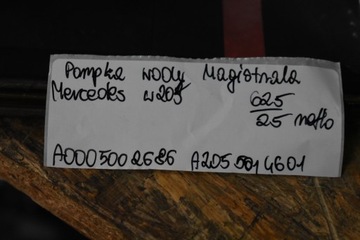 Pompka wody Magistrala
Mercedes w205 625
25 netto
A000 500 2686 A205 501 4601